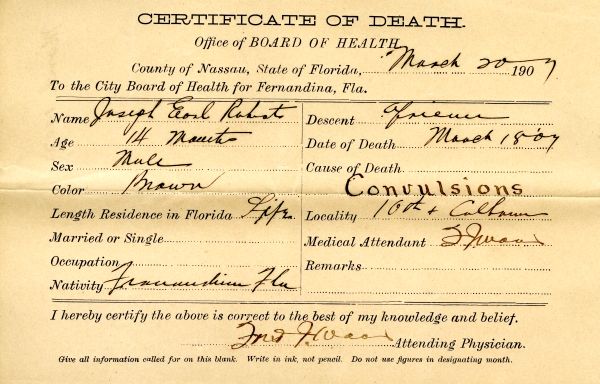 CERTIFICATE OF DEATH.
Office of BOARD OF HEALTH,
County of Nassau, State of Florida, March 20 1907
To the City Board of Health for Fernandina, Fla.
Name Joseph Earl Roberts
Age 14 Months
Sex Male
Color Brown
Length Residence in Florida Life
Married or Single
Occupation
Nativity Fernandina Fla
Descent
Date of Death March 18 '07
Cause of Death
Convulsions
Locality 10th & Calhoun
Medical Attendant
Remarks
I hereby certify the above is correct to the best of my knowledge and belief.
Attending Physician.
Give all information called for on this blank. Write in ink, not pencil. Do not use figures in designating month.